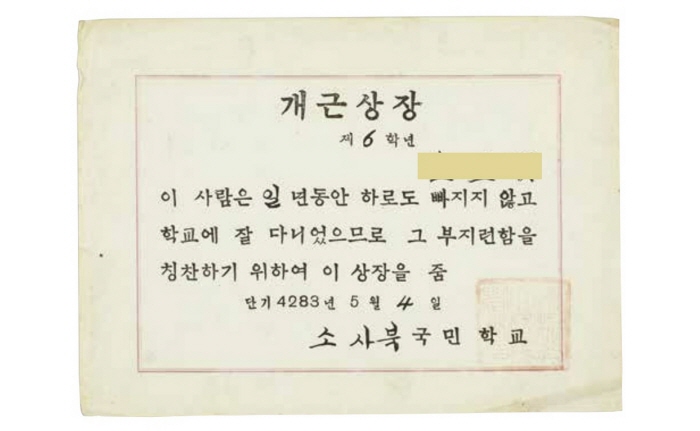 개근상장
제 6 학년
이 사람은 일 년동안 하로도 빠지지 않고
학교에 잘 다니었으므로 그 부지련함을
칭찬하기 위하여 이 상장을 줌
단기 4283년 5 월 4 일
소사북국민학교